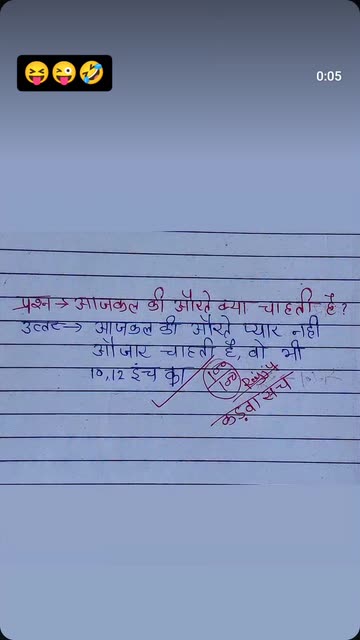 😝😜🤣
0:05
प्रश्न → आजकल की औरते क्या चाहती है?
उत्तर → आजकल की औरते प्यार नही
औजार चाहती है, वो भी
10,12 इंच का
100/100
कड़वा सच